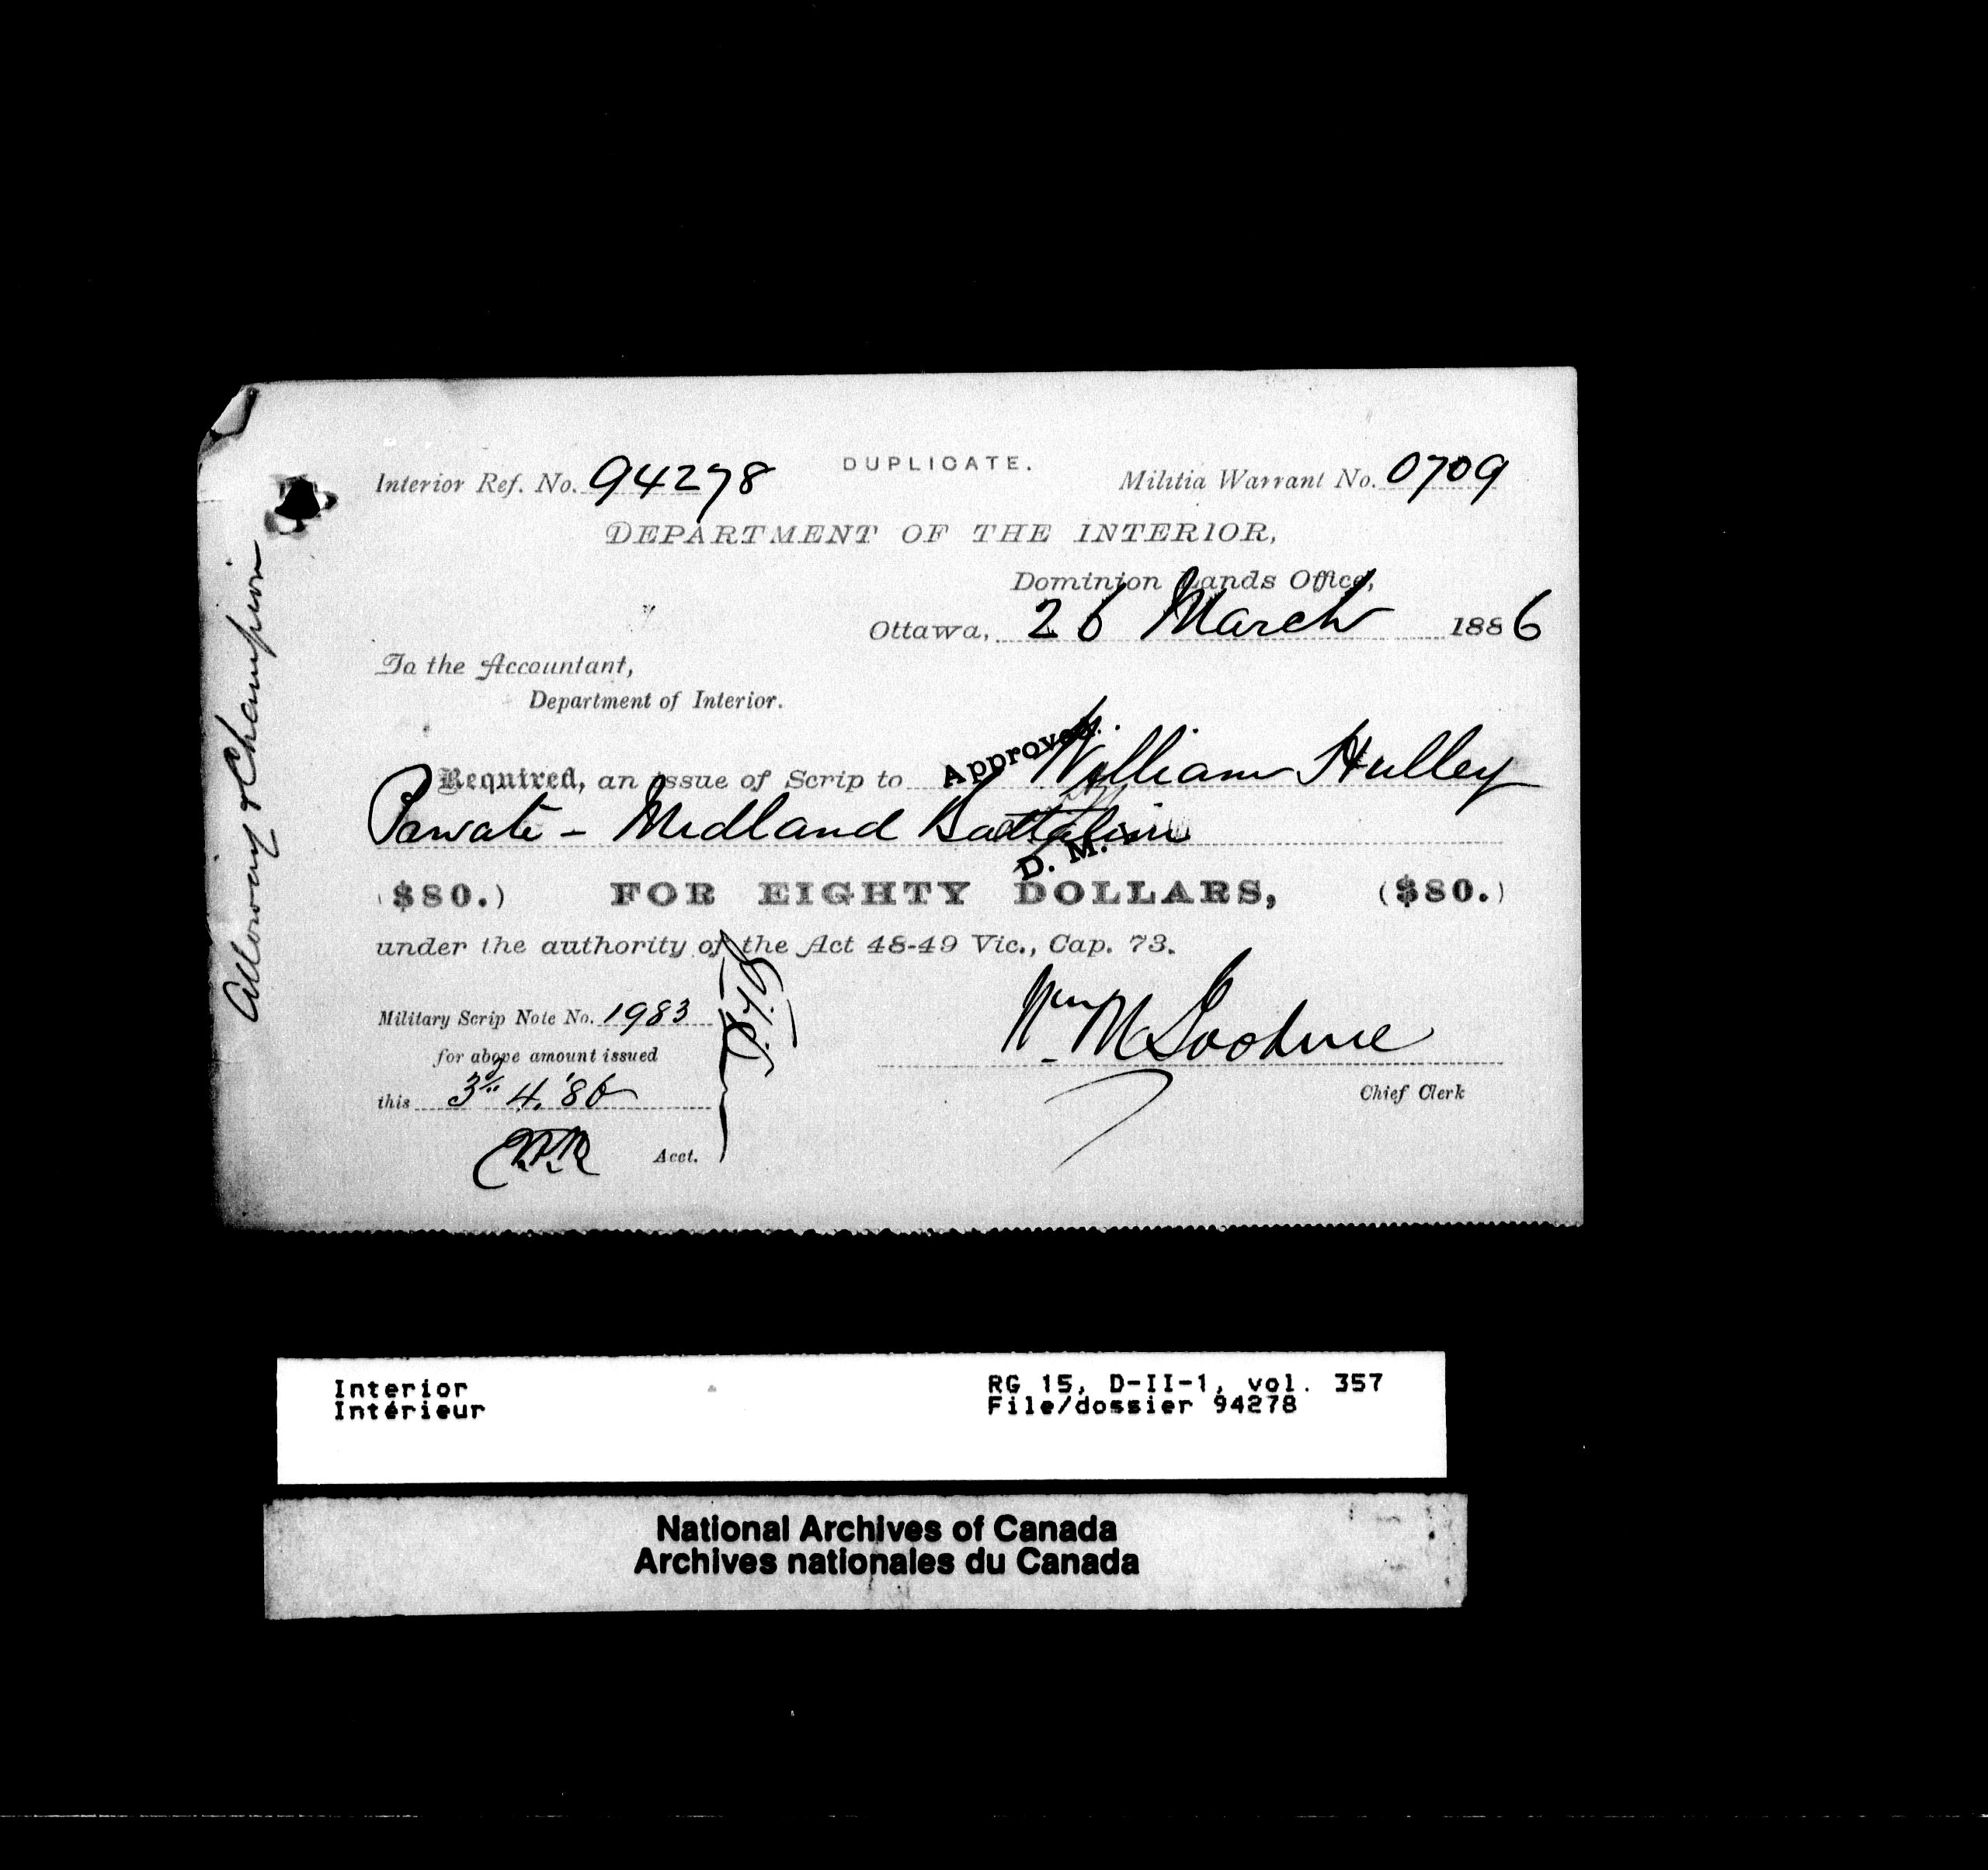 DUPLICATE.
Interior Ref. No. 94278 Militia Warrant No. 0709
DEPARTMENT OF THE INTERIOR,
Dominion Lands Office,
Ottawa, 26 March 1886
To the Accountant,
Department of Interior.
Approved.
Required, an issue of Scrip to William Hulley
Private - Midland Battalion
D. M.
($80.) FOR EIGHTY DOLLARS, ($80.)
under the authority of the Act 48-49 Vic., Cap. 73.
Military Scrip Note No. 1983
for above amount issued
this 3 4. '86
Acct.
Wm M
Chief Clerk
Alloway & Champion
Interior
Intérieur
RG 15, D-II-1, vol. 357
File/dossier 94278
National Archives of Canada
Archives nationales du Canada